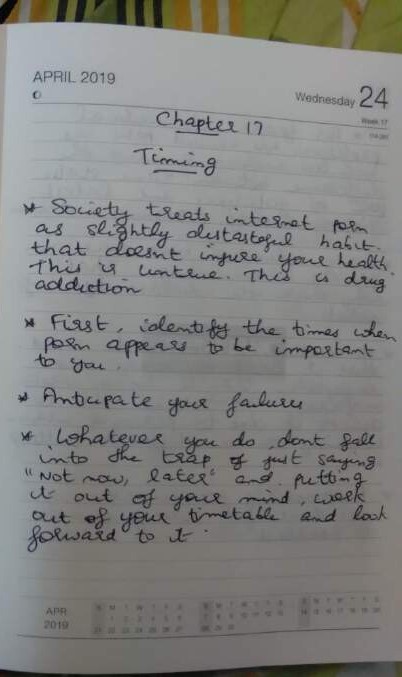 APRIL 2019
Wednesday 24
Week 17
Chapter 17
Timing
* Society treats internet porn
as slightly distasteful habit.
that doesnt injure your health.
This is untrue. This is drug
addiction
* First, identify the times when
porn appears to be important
to you.
* Anticipate your failures
* Whatever you do, dont fall
into the trap of just saying
"Not now, later" and putting
it out of your mind, work
out of your timetable and look
forward to it.
APR
2019